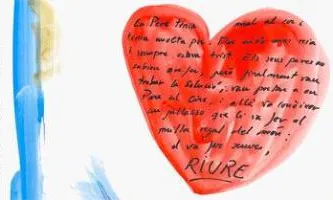 En Pere Tenia mal al cor i
tenia molta por. Ell
i sempre estava trist. Els seus pares no
sabien que fer, però finalment van
trobar la solució; van portar a en
Pere al Circ, i allà va conèixer
un pallasso que li va fer el
millor regal del món:
el va fer riure,
RIURE